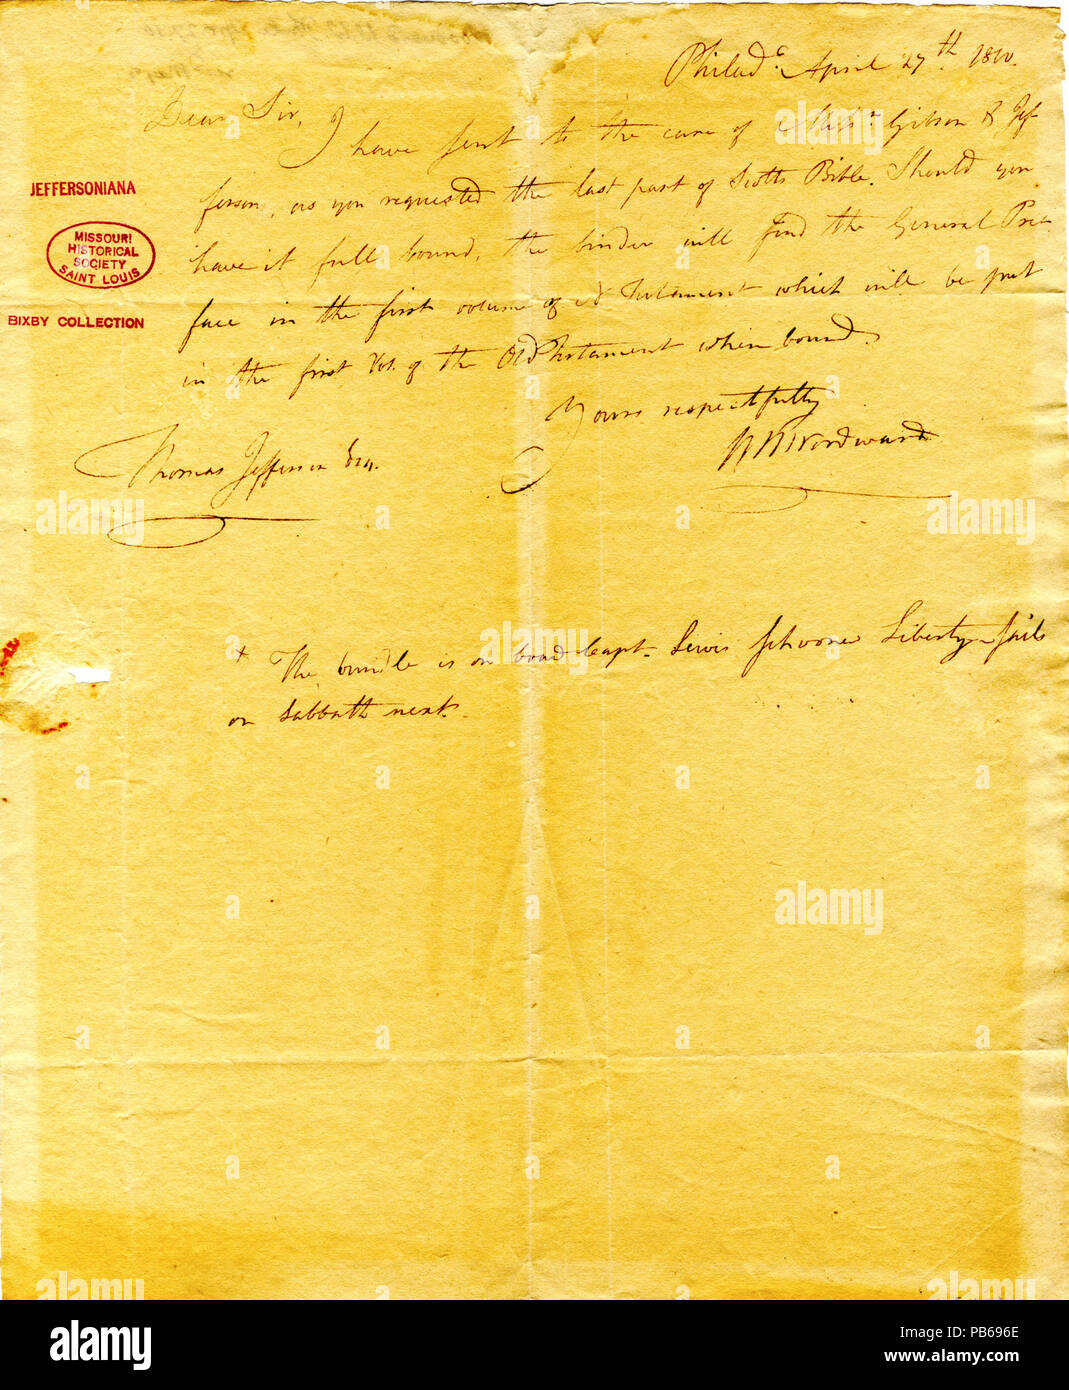 Philad.ᵃ April 27th 1810.
Dear Sir,
I have sent to the care of Messrs. Gibson & Jef-
ferson, as you requested the last part of Scotts Bible. Should you
have it full bound, the binder will find the General Pre-
face in the first volume of N Testament which will be put
in the first Vol. of the Old Testament when bound.
Yours respectfully
W W Woodward
Thomas Jefferson Esq.
+ The bundle is on board Capt. Lewis schooner Liberty - sails
on Sabbath next.
JEFFERSONIANA
MISSOURI
HISTORICAL
SOCIETY
SAINT LOUIS
BIXBY COLLECTION
alamy
Image ID: PB696E
www.alamy.com